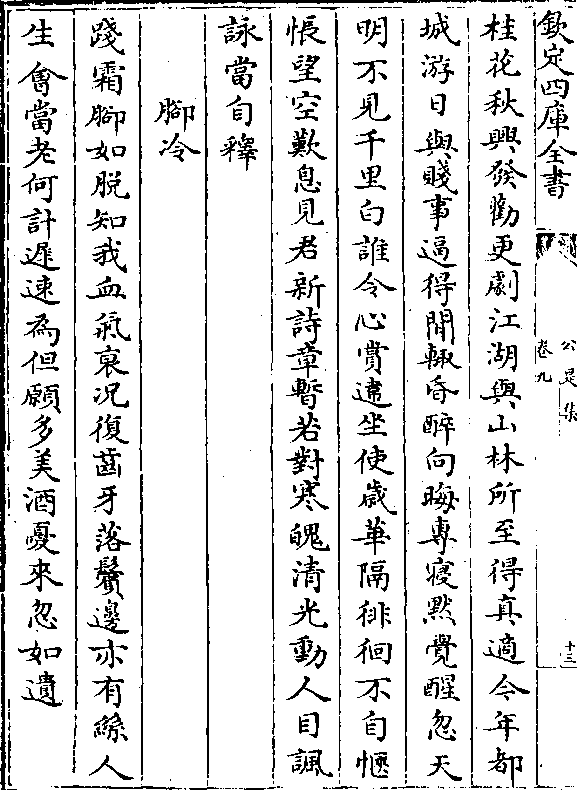 欽定四庫全書
公是集
卷九
十三
桂花秋興發勸更劇江湖與山林所至得真適今年都
城游日與賤事逼得閒輒昏醉向晦專寢黙覺醒忽天
明不見千里白誰令心賞違坐使歳華隔徘徊不自愜
悵望空歎息見君新詩章暫若對寒魄清光動人目諷
詠當自釋
腳冷
踐霜腳如脱知我血氣衰况復齒牙落鬢邊亦有絲人
生會當老何計遲速為但願多美酒憂來忽如遺